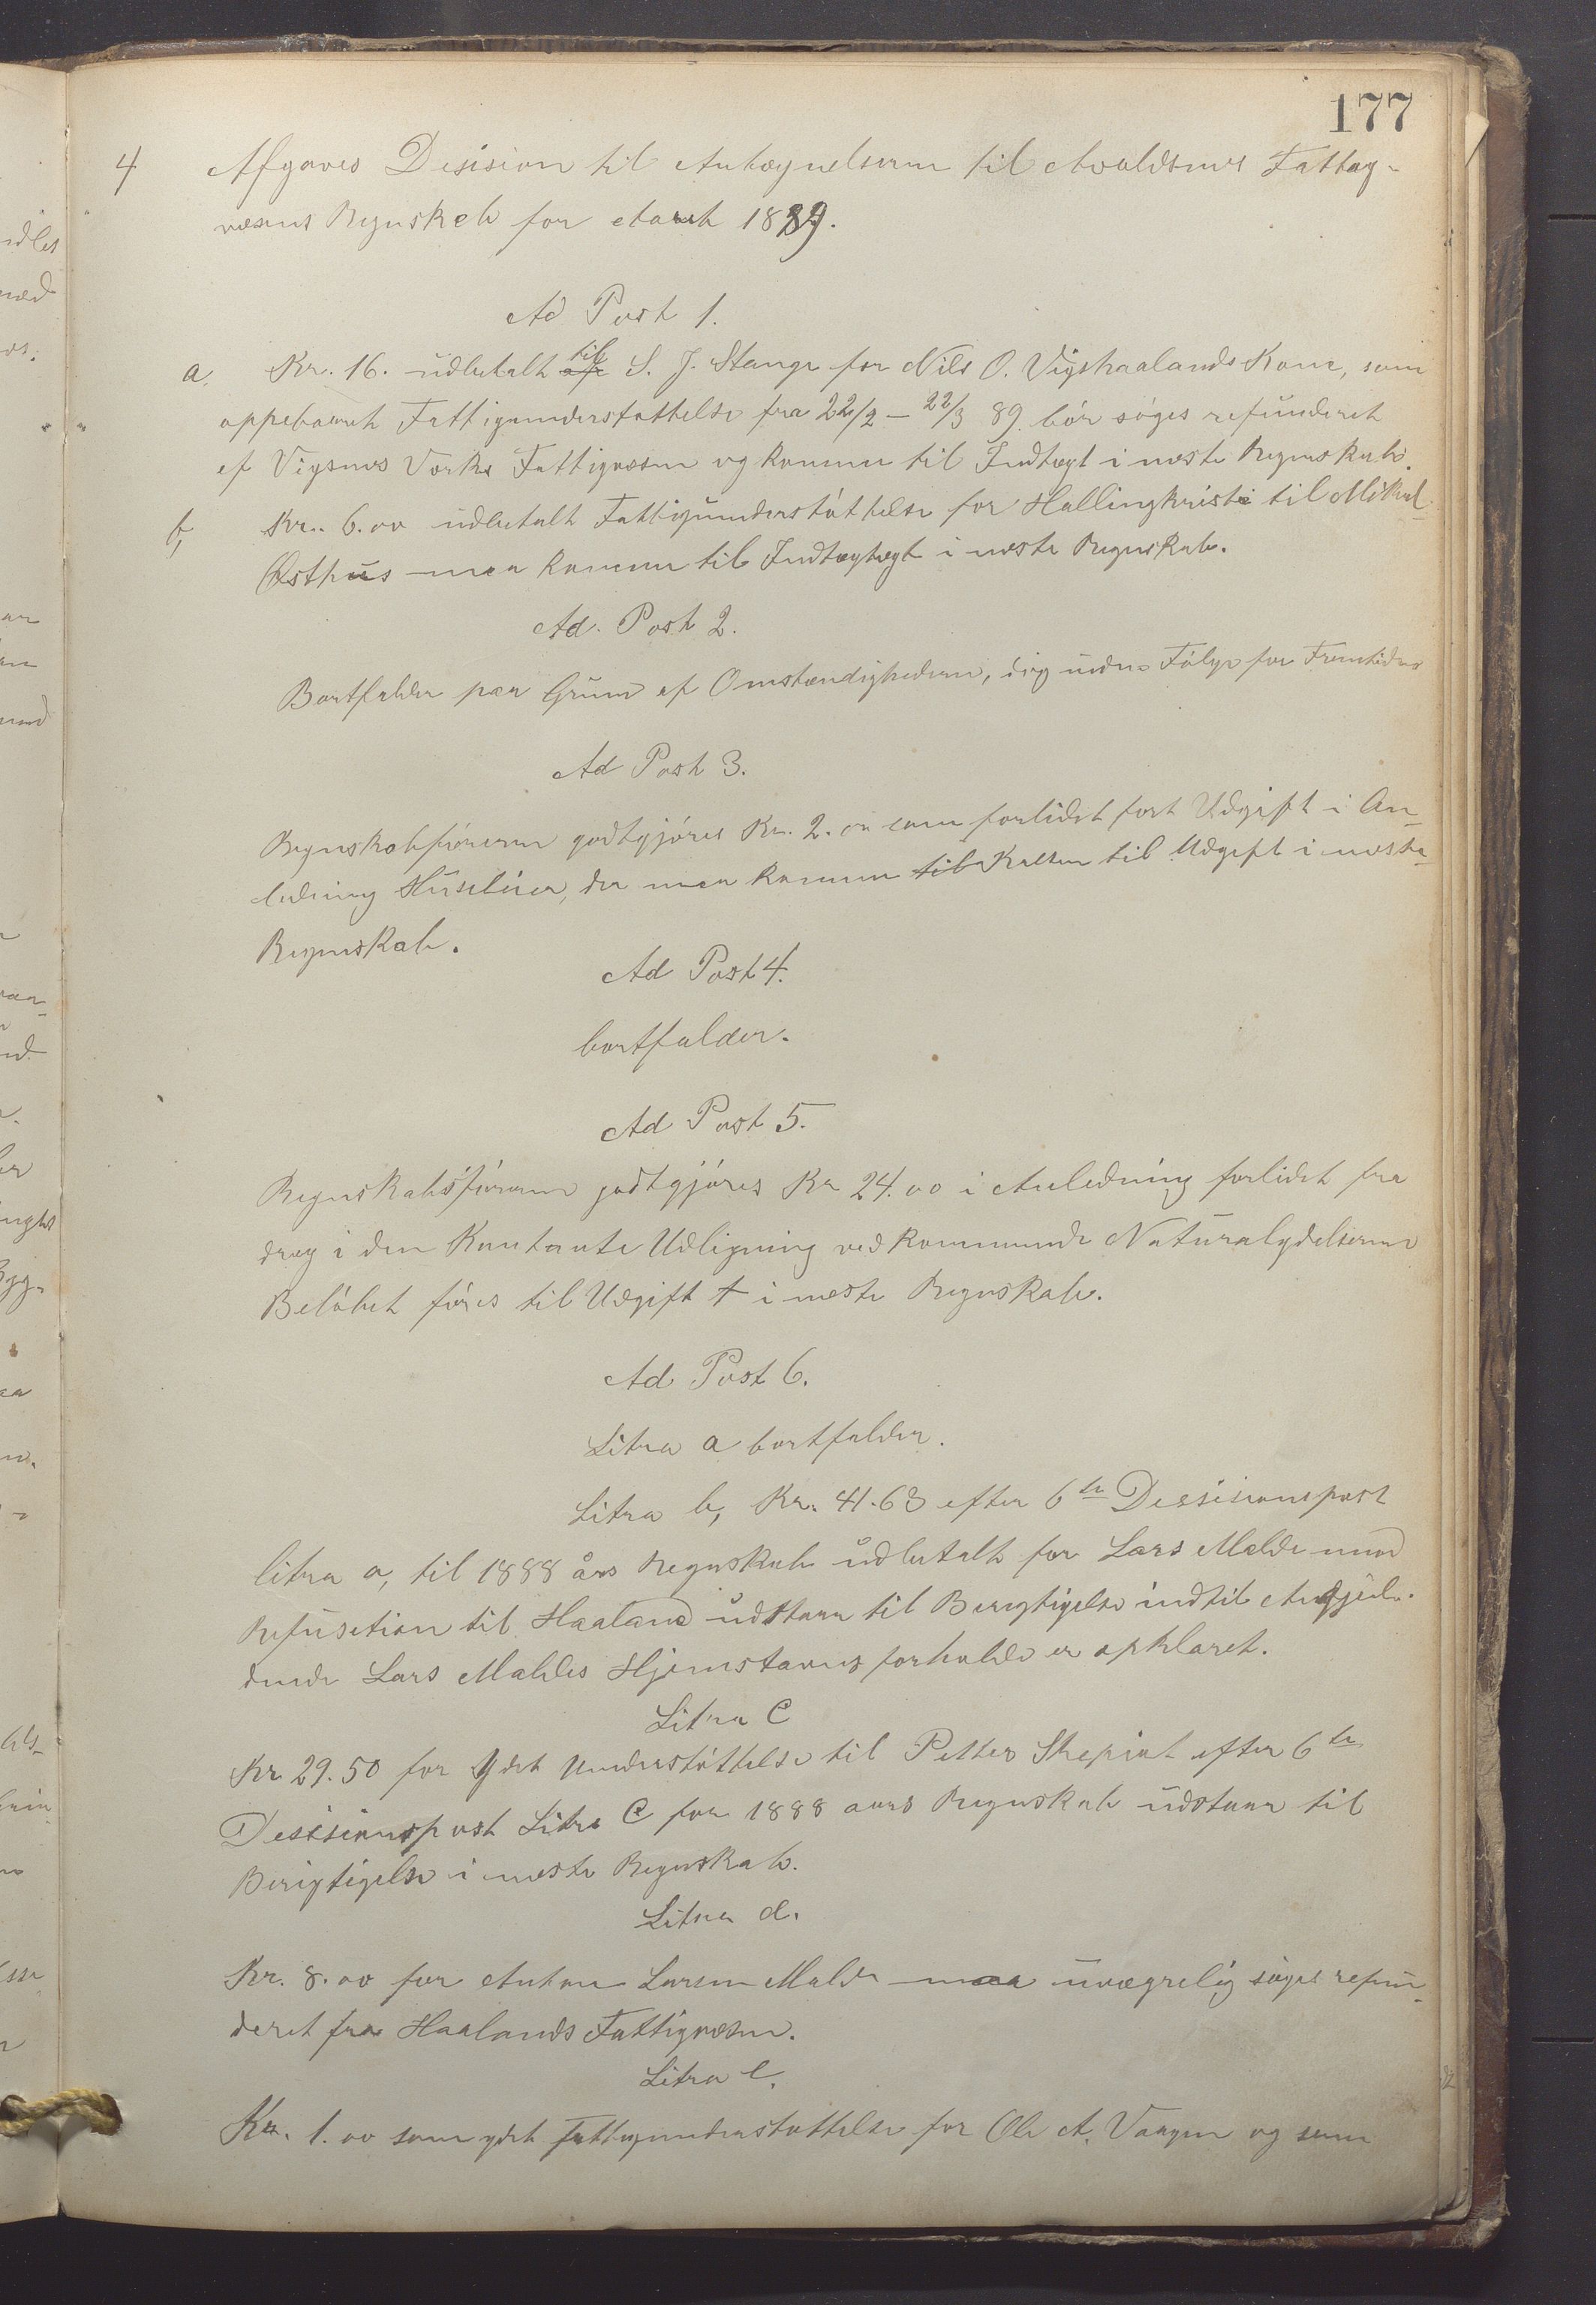 177
4 Afgaves Desision til Antegnelserne til Avaldsnes Fattig-
væsens Regnskab for Aaret 1889.
Ad Post 1.
a, Kr. 16. udbetalt til S. J. Stange for Nils O. Vigshaalands Kone, som
oppebaaret Fattigunderstøttelse fra 22/2 - 22/3 89. bör söges refunderet
af Vigsnes Værks Fattigvæsen og komme til Indtægt i næste Regnskab.
b, Kr. 6.00 udbetalt Fattigunderstöttelse for Hallingkristi til Mikal
Østhus maa komme til Indtægtægt i neste Regnskab.
Ad. Post 2.
Bortfalder paa Grund af Omstændighederne, dog uden Fölge for Fremtiden
Ad Post 3.
Regnskabsförerern godtgjöres Kr. 2.00 som forlidet fört Udgift i An-
ledning Huseleie, der maa komme til Kassen til Udgift i neste
Regnskab.
Ad Post 4.
bortfalder.
Ad Post 5.
Regnskabsföreren godtgjöres Kr 24.00 i Anledning forlidet fra
drag i den Kontante Udligning vedkommende Naturalydelserne
Belöbet föres til Udgift i næste Regnskab.
Ad Post 6.
Litra a bortfalder.
Litra b, Kr. 41.63 efter 6te Desisionspost
litra a, til 1888 års Regnskab udbetalt for Lars Malde mod
Refusetion til Haaland udstaar til Berigtigelse indtil Angjel.
dende Lars Maldes Hjemstavns forholde er opklaret.
Litra C
Kr 29.50 for Ydet Understöttelse til Petter efter 6te
Desisionspost Litra C for 1888 aars Regnskab udstaar til
Berigtigelse i neste Regnskab.
Litra d.
Kr. 8.00 for Anton Larsen Malde maa uvægrelig söges refun-
deret fra Haalands Fattigvæsen.
Litra e.
Kr. 1.00 som ydet Fattigunderstøttelse for Ole A. Vaagen og som